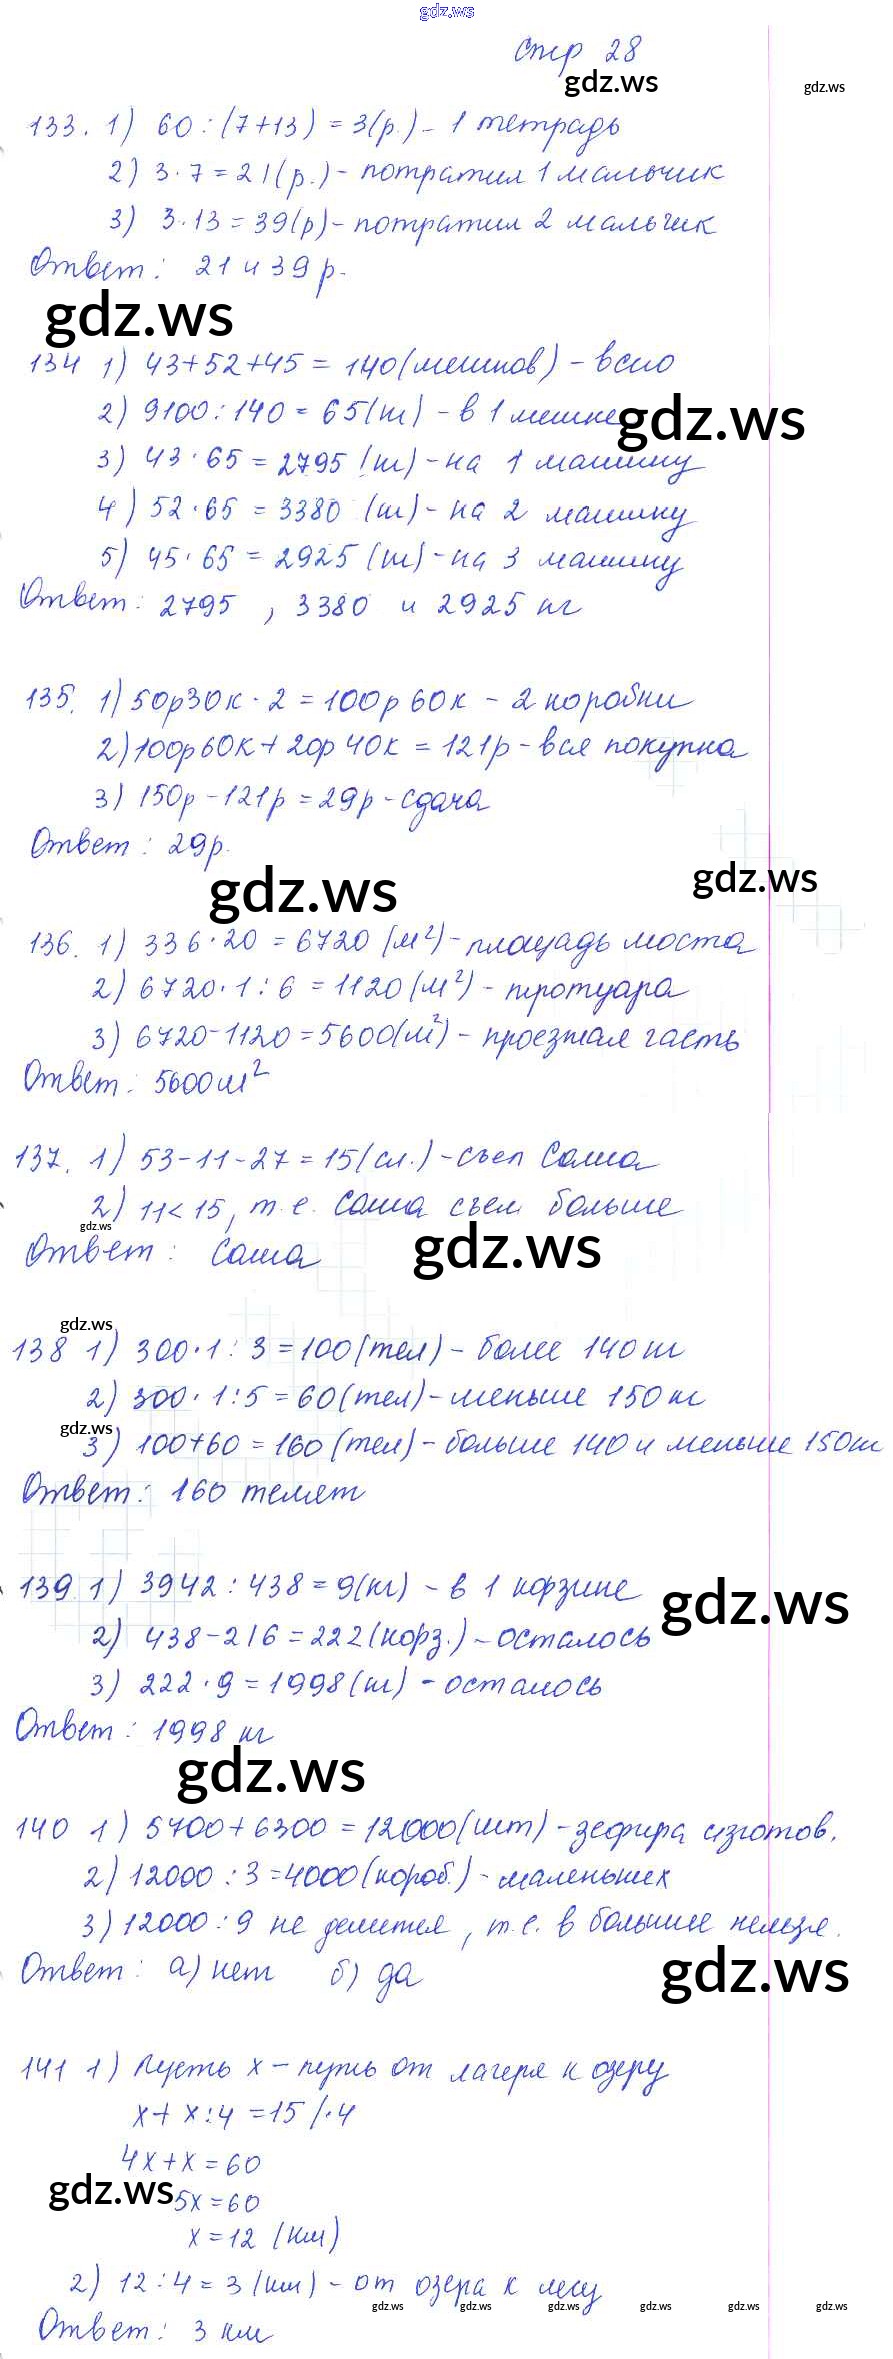 gdz.ws
стр 28
gdz.ws gdz.ws
133. 1) 60 : (7+13) = 3(р.) - 1 тетрадь
2) 3·7=21(р.) - потратил 1 мальчик
3) 3·13=39(р) - потратил 2 мальчик
Ответ: 21 и 39 р.
gdz.ws
134 1) 43+52+45 = 140(мешков) - всего
2) 9100:140= 65(кг) - в 1 мешке
gdz.ws
3) 43·65=2795 (кг) - на 1 машину
4) 52·65 = 3380 (кг) - на 2 машину
5) 45·65=2925 (кг) - на 3 машину
Ответ: 2795 , 3380 и 2925 кг
135. 1) 50р30к·2 = 100р 60к - 2 коробки
2) 100р60к+20р 40к = 121р - вся покупка
3) 150р-121р=29р - сдача
Ответ: 29р.
gdz.ws gdz.ws
136. 1) 336·20 = 6720 (м²) - площадь моста
2) 6720·1:6 = 1120(м²) - тротуара
3) 6720-1120=5600(м²) - проезжая часть
Ответ: 5600м²
137. 1) 53-11-27=15(сл.) - съел Саша
2) 11<15, т.е. Саша съел больше
gdz.ws
Ответ: Саша
gdz.ws
gdz.ws
138 1) 300·1:3=100(тел) - более 140кг
2) 300·1:5=60(тел) - меньше 150кг
gdz.ws
3) 100+60=160(тел) - больше 140 и меньше 150кг
Ответ: 160 телят
139 1) 3942:438=9(кг) - в 1 корзине
gdz.ws
2) 438-216=222(корз.) - осталось
3) 222·9=1998(кг) - осталось
Ответ: 1998 кг
gdz.ws
140 1) 5700+6300=12000(шт) - зефира изготов.
2) 12000:3=4000(короб.) - маленьких
3) 12000:9 не делится, т.е. в большие нельзя.
Ответ: а) нет б) да
gdz.ws
141 1) Пусть х - путь от лагеря к озеру
х+х:4=15 /·4
4х+х=60
gdz.ws
5х=60
х=12 (км)
2) 12:4=3(км) - от озера к лесу
gdz.ws gdz.ws gdz.ws gdz.ws gdz.ws gdz.ws
Ответ: 3 км